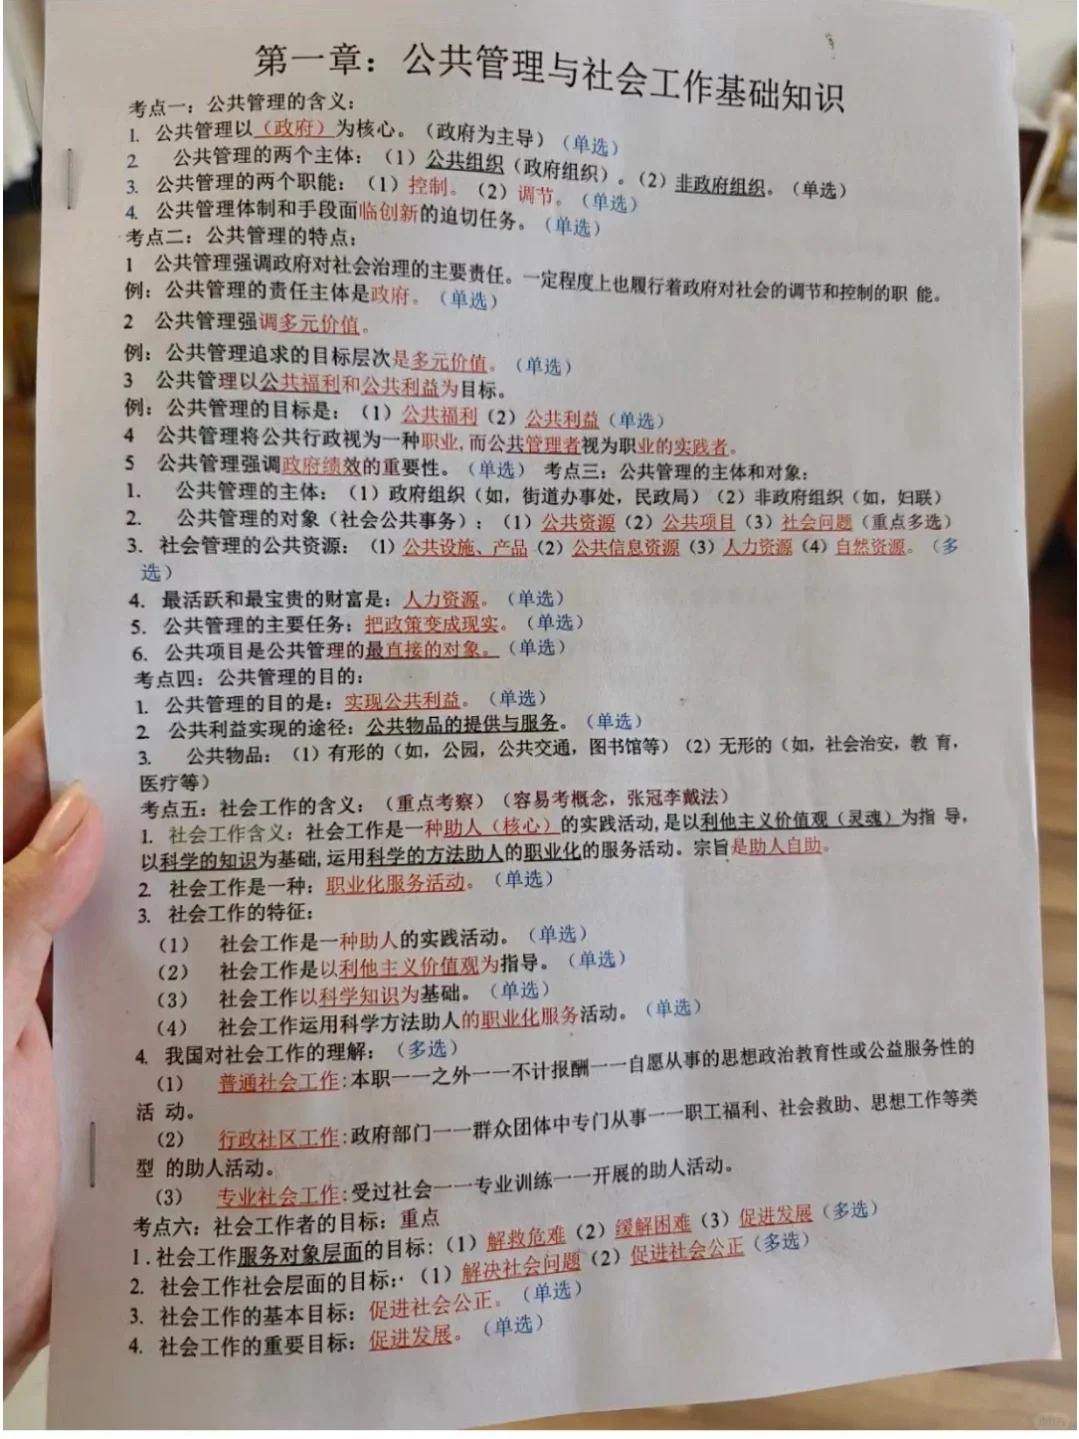 第一章：公共管理与社会工作基础知识
考点一：公共管理的含义：
1. 公共管理以（政府）为核心。（政府为主导）（单选）
2 公共管理的两个主体：（1）公共组织（政府组织）。（2）非政府组织。（单选）
3. 公共管理的两个职能：（1）控制。（2）调节。（单选）
4. 公共管理体制和手段面临创新的迫切任务。（单选）
考点二：公共管理的特点：
1 公共管理强调政府对社会治理的主要责任。一定程度上也履行着政府对社会的调节和控制的职 能。
例：公共管理的责任主体是政府。（单选）
2 公共管理强调多元价值。
例：公共管理追求的目标层次是多元价值。（单选）
3 公共管理以公共福利和公共利益为目标。
例：公共管理的目标是：（1）公共福利（2）公共利益（单选）
4 公共管理将公共行政视为一种职业,而公共管理者视为职业的实践者。
5 公共管理强调政府绩效的重要性。（单选） 考点三：公共管理的主体和对象：
1. 公共管理的主体：（1）政府组织（如，街道办事处，民政局）（2）非政府组织（如，妇联）
2. 公共管理的对象（社会公共事务）：（1）公共资源（2）公共项目（3）社会问题（重点多选）
3. 社会管理的公共资源：（1）公共设施、产品（2）公共信息资源（3）人力资源（4）自然资源。（多
选）
4. 最活跃和最宝贵的财富是：人力资源。（单选）
5. 公共管理的主要任务：把政策变成现实。（单选）
6. 公共项目是公共管理的最直接的对象。（单选）
考点四：公共管理的目的：
1. 公共管理的目的是：实现公共利益。（单选）
2. 公共利益实现的途径：公共物品的提供与服务。（单选）
3. 公共物品：（1）有形的（如，公园，公共交通，图书馆等）（2）无形的（如，社会治安，教 育，
医疗等）
考点五：社会工作的含义：（重点考察）（容易考概念，张冠李戴法）
1. 社会工作含义：社会工作是一种助人（核心）的实践活动,是以利他主义价值观（灵魂）为指 导，
以科学的知识为基础,运用科学的方法助人的职业化的服务活动。宗旨是助人自助。
2. 社会工作是一种：职业化服务活动。（单选）
3. 社会工作的特征：
（1） 社会工作是一种助人的实践活动。（单选）
（2） 社会工作是以利他主义价值观为指导。（单选）
（3） 社会工作以科学知识为基础。（单选）
（4） 社会工作运用科学方法助人的职业化服务活动。（单选）
4. 我国对社会工作的理解：（多选）
（1） 普通社会工作:本职一一之外一一不计报酬一一自愿从事的思想政治教育性或公益服务性的
活 动。
（2） 行政社区工作:政府部门一一群众团体中专门从事一一职工福利、社会救助、思想工作等类
型 的助人活动。
（3） 专业社会工作:受过社会一一专业训练一一开展的助人活动。
考点六：社会工作者的目标：重点
1.社会工作服务对象层面的目标:（1）解救危难（2）缓解困难（3）促进发展（多选）
2. 社会工作社会层面的目标:·（1）解决社会问题（2）促进社会公正（多选）
3. 社会工作的基本目标：促进社会公正。（单选）
4. 社会工作的重要目标：促进发展。（单选）